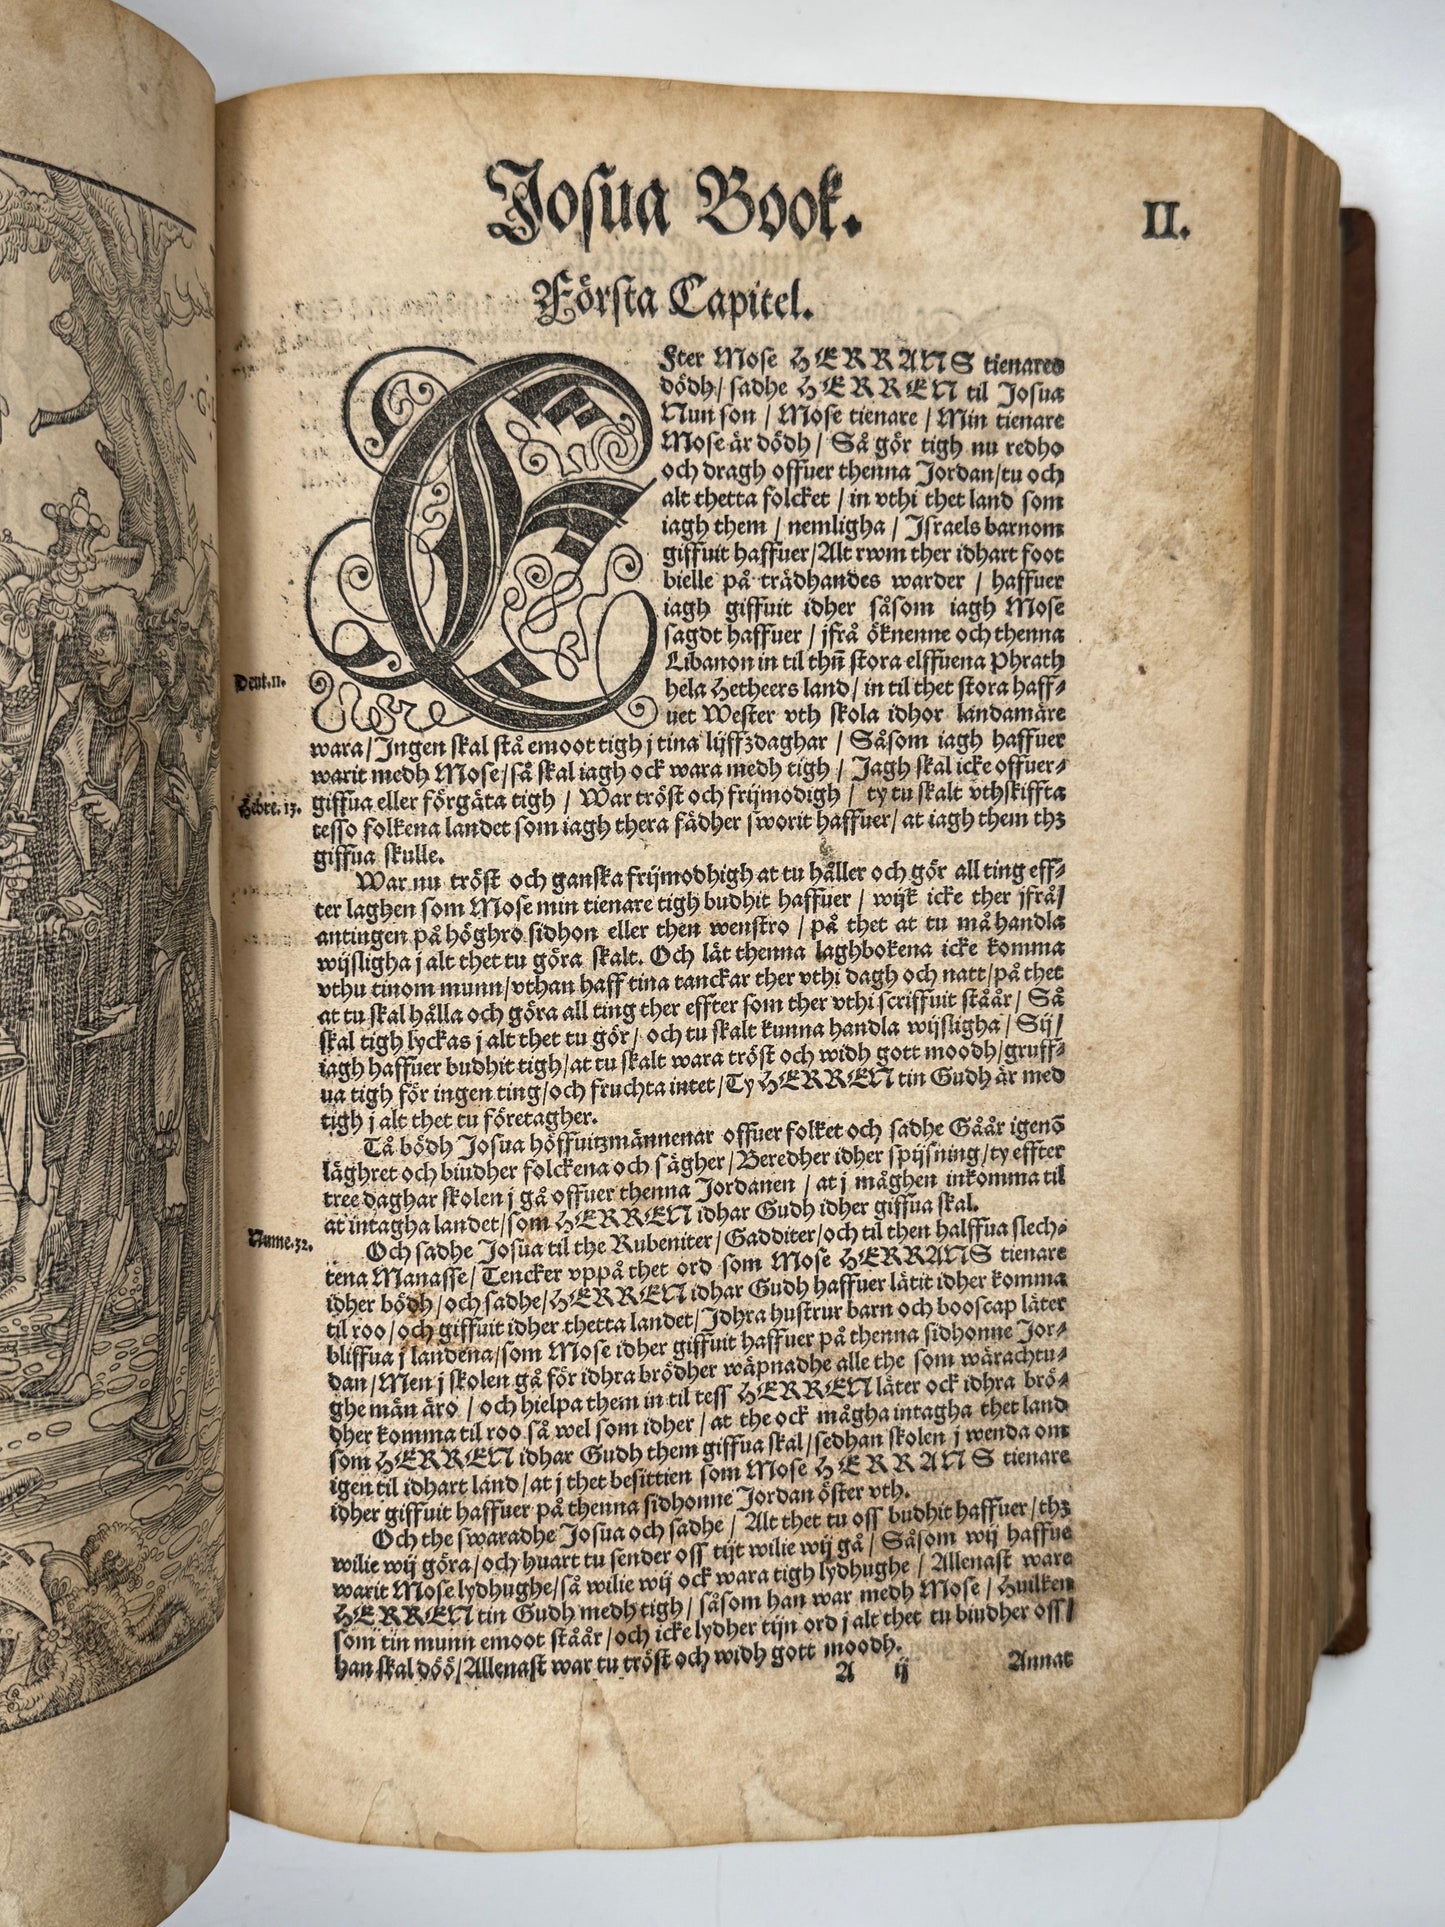 Josua Book.
II.
Första Capitel.
EFter Mose HERRANS tienares
dödh/ sadhe HERREN til Josua
Nun son / Mose tienare / Min tienare
Mose är dödh / Så gör tigh nu redho
och dragh offuer thenna Jordan/tu och
alt thetta folcket / in vthi thet land som
iagh them / nemligha / Israels barnom
giffuit haffuer/Alt rwm ther idhart foot
bielle på trädhandes warder / haffuer
iagh giffuit idher såsom iagh Mose
sagdt haffuer / jfrå öknenne och thenna
Libanon in til thñ stora elffuena Phrath
Deut.11.
hela Hetheers land/ in til thet stora haff⸗
uet Wester vth skola idhor landamäre
wara/Ingen skal stå emoot tigh j tina lijffzdaghar / Såsom iagh haffuer
warit medh Mose/så skal iagh ock wara medh tigh / Jagh skal icke offuer⸗
Hebre.13.
giffua eller förgäta tigh / War tröst och frijmodigh / ty tu skalt vthskiffta
tesso folkena landet som iagh thera fädher sworit haffuer/ at iagh them thz
giffua skulle.
War nu tröst och ganska frijmodhigh at tu håller och gör all ting eff⸗
ter laghen som Mose min tienare tigh budhit haffuer / wijk icke ther jfrå/
antingen på höghro sidhon eller then wenstro / på thet at tu må handla
wijsligha j alt thet tu göra skalt. Och lät thenna laghbokena icke komma
vthu tinom munn/vthan haff tina tanckar ther vthi dagh och natt/på thet
at tu skal hålla och göra all ting ther effter som ther vthi scriffuit stäår/ Så
skal tigh lyckas j alt thet tu gör/ och tu skalt kunna handla wijsligha/ Sij/
iagh haffuer budhit tigh/at tu skalt wara tröst och widh gott moodh/gruff⸗
ua tigh för ingen ting/och fruchta intet/Ty HERREN tin Gudh är med
tigh j alt thet tu företagher.
Tå bödh Josua höffuitzmännenar offuer folket och sadhe Gåår igenõ
läghret och biudher folckena och sägher/Beredher idher spijsning/ty effter
tree daghar skolen j gå offuer thenna Jordanen / at j måghen inkomma til
at intagha landet/som HERREN idhar Gudh idher giffua skal.
Nume.32.
Och sadhe Josua til the Rubeniter/Gadditer/och til then halffua slech⸗
tena Manasse/Tencker vppå thet ord som Mose HERRANS tienare
idher bödh/och sadhe/HERREN idhar Gudh haffuer lätit idher komma
til roo/och giffuit idher thetta landet/Idhra hustrur barn och booscap läter
bliffua j landena/som Mose idher giffuit haffuer på thenna sidhonne Jor⸗
dan/Men j skolen gå för idhra brödher wäpnadhe alle the som wärachtu⸗
ghe män äro / och hielpa them in til tess HERREN läter ock idhra brö⸗
dher komma til roo så wel som idher/ at the ock mågha intagha thet land
som HERREN idhar Gudh them giffua skal/sedhan skolen j wenda om
igen til idhart land/at j thet besittien som Mose HERRANS tienare
idher giffuit haffuer på thenna sidhonne Jordan öster vth.
Och the swaradhe Josua och sadhe / Alt thet tu oss budhit haffuer/thz
wilie wij göra/och huart tu sender oss tijt wilie wij gå/ Såsom wij haffue
warit Mose lydhughe/så wilie wij ock wara tigh lydhughe / Allenast ware
HERREN tin Gudh medh tigh/ såsom han war medh Mose / Huilken
som tin munn emoot stäår/och icke lydher tijn ord j alt thet tu biudher oss/
han skal döö/Allenast war tu tröst och widh gott moodh.
A ij
Annat